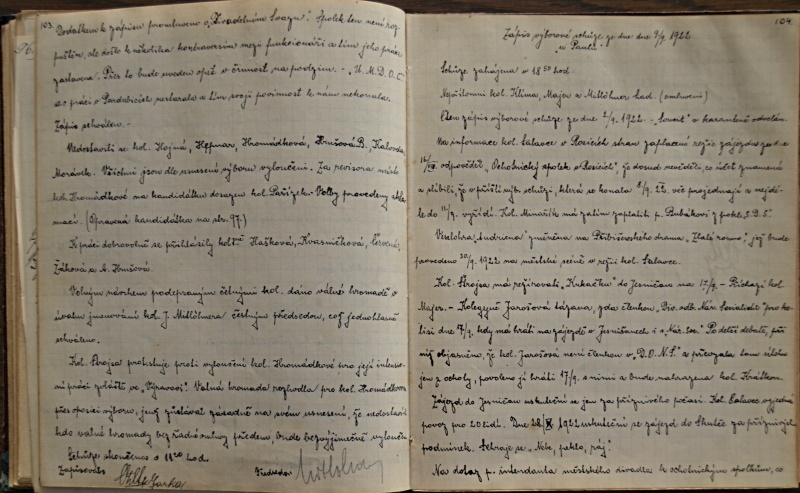 103.
Dodatkem k zápisu promluveno o „Divadelním Svazu". Spolek ten není roz-
puštěn, ale došlo k několika kontraversím mezi funkcionáři a tím jeho práce
zastavena. Přes to bude uveden opět v činnost na podzim. – „Ú.M.D.O.Č."
se o práci v Pardubicích nestaralo a tím svoji povinnost k nám nekonala.
Zápis schválen. –
Nedostavili se kol. Hojná, Heřman, Hromádková, Hrušová B., Kalovda,
Morávek. Všichni jsou dle usnesení výboru vyloučeni. Za revisora místo
kol. Hromádkové na kandidátku dosazen kol. Pařízek. Volby provedeny akla-
mací. (Opravená kandidátka na str. 97.)
K práci dobrovolně se přihlásily Hašková, Kvasničková, Červená,
Žáková a A. Hrušová.
Volným návrhem podepraným četnými kol. dáno valné hromadě v
úvahu jmenování kol. J. Mittöhnera čestným předsedou, což jednohlasně
schváleno.
Kol. Strojsa protestuje proti vyloučení kol. Hromádkové pro její
práci zvláště ve „Výpravě". Valná hromada rozhodla pro kol. Hromádkovou
přes oposici výboru, jenž zůstával zásadně na svém usnesení, že nedostaví-
kdo valné hromady bez řádné omluvy předem, bude bezvýjimečně vyloučen.
Schůze skončena o 11 20 hod.
Zapisovatel: Předseda:
104.
Zápis výborové schůze ze dne dne 9/9. 1922
„u Pavla".
Schůze zahájena v 18 50 hod.
Nepřítomni kol. Klíma, Majer a Mittöhner Lad. (omluveni)
Čten zápis výborové schůze ze dne 2/9. 1922. – odvolán.
Na informace kol. Salavce v Rosicích stran zaplacení režie zájezdu ze dne
16/VII odpověděl „Ochotnický spolek v Rosicích", že dosud nevěděli, co účet znamená
a slíbili, že v příští výb. schůzi, která se konala 8/9. 22. věc projednají a nejdé-
le do 11/9. vyřídí. Kol. Minařík má zatím zaplatit p. z pokl. S.D.Š."
Veselohra „Ludvíena" změněna na Přibíčevského drama, „Zlaté rouno", jež bude
provedeno 20/9. 1922 na městské scéně v režii kol. Salavce.
Kol. Strojsa má režírovati „Kukačku" do Jesničan na 17/9. – Přichází kol.
Majer. – Kolegyně Jarošová tázána, zda členkou „Div. odb. Nár. Socialistů" pro ko-
lisi dne 17/9. kdy má hráti na zájezdě v Jesničanech i s „Nár. soc." Po delší debatě, při
níž objasněno, že kol. Jarošová není členkou v „D.O.N.S." a převzala tam úlohu
jen z ochoty, povoleno jí hráti 17/9. s nimi a bude nahrazena kol. Králkou.
Zájezd do Jesničan uskuteční se jen za příznivého počasí. Kol. Salavec vyjedná
povoz pro 20 lidí. Dne X. 1922 uskuteční se zájezd do Skutče za příznivých
podmínek. Sehraje se „Nebe, peklo, ráj".
Na dotaz p. intendanta městského divadla k ochotnickým spolkům, co